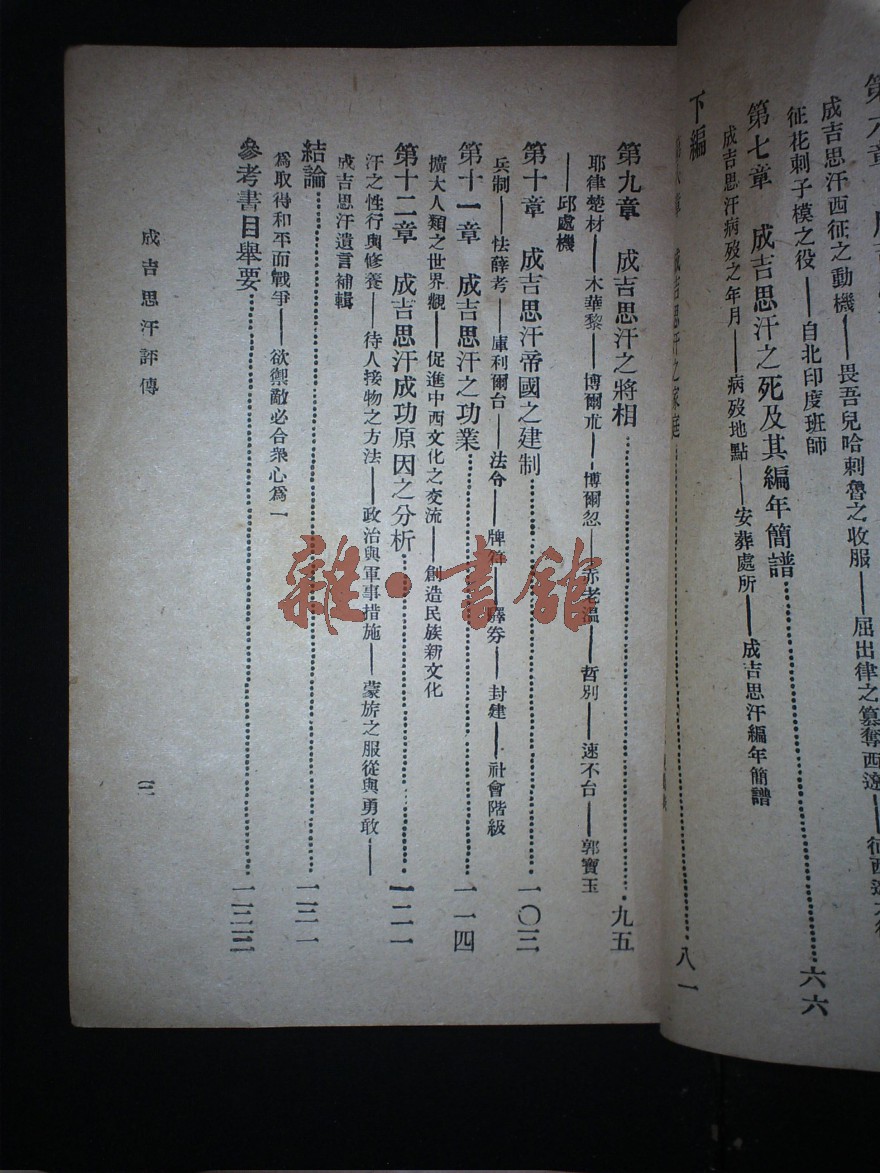 成吉思汗西征之動機——畏吾兒哈剌魯之收服——屈出律之篡奪西遼——征西遼之役
征花剌子模之役——自北印度班師
第七章　成吉思汗之死及其編年簡譜……六六
成吉思汗病歿之年月——病歿地點——安葬處所——成吉思汗編年簡譜
下編
成吉思汗之家庭……八一
第九章　成吉思汗之將相……九五
耶律楚材——木華黎——博爾朮——博爾忽——赤老溫——哲別——速不台——郭寶玉
——邱處機
第十章　成吉思汗帝國之建制……一〇三
兵制——怯薛考——庫利爾台——法令——牌符——驛券——封建——社會階級
第十一章　成吉思汗之功業……一一四
擴大人類之世界觀——促進中西文化之交流——創造民族新文化
第十二章　成吉思汗成功原因之分析……一二一
汗之性行與修養——待人接物之方法——政治與軍事措施——蒙族之服從與勇敢——
成吉思汗遺言補輯
結論……一三一
爲取得和平而戰爭——欲禦敵必合衆心爲一
參考書目舉要……一三三
成吉思汗評傳
三
雜·書館